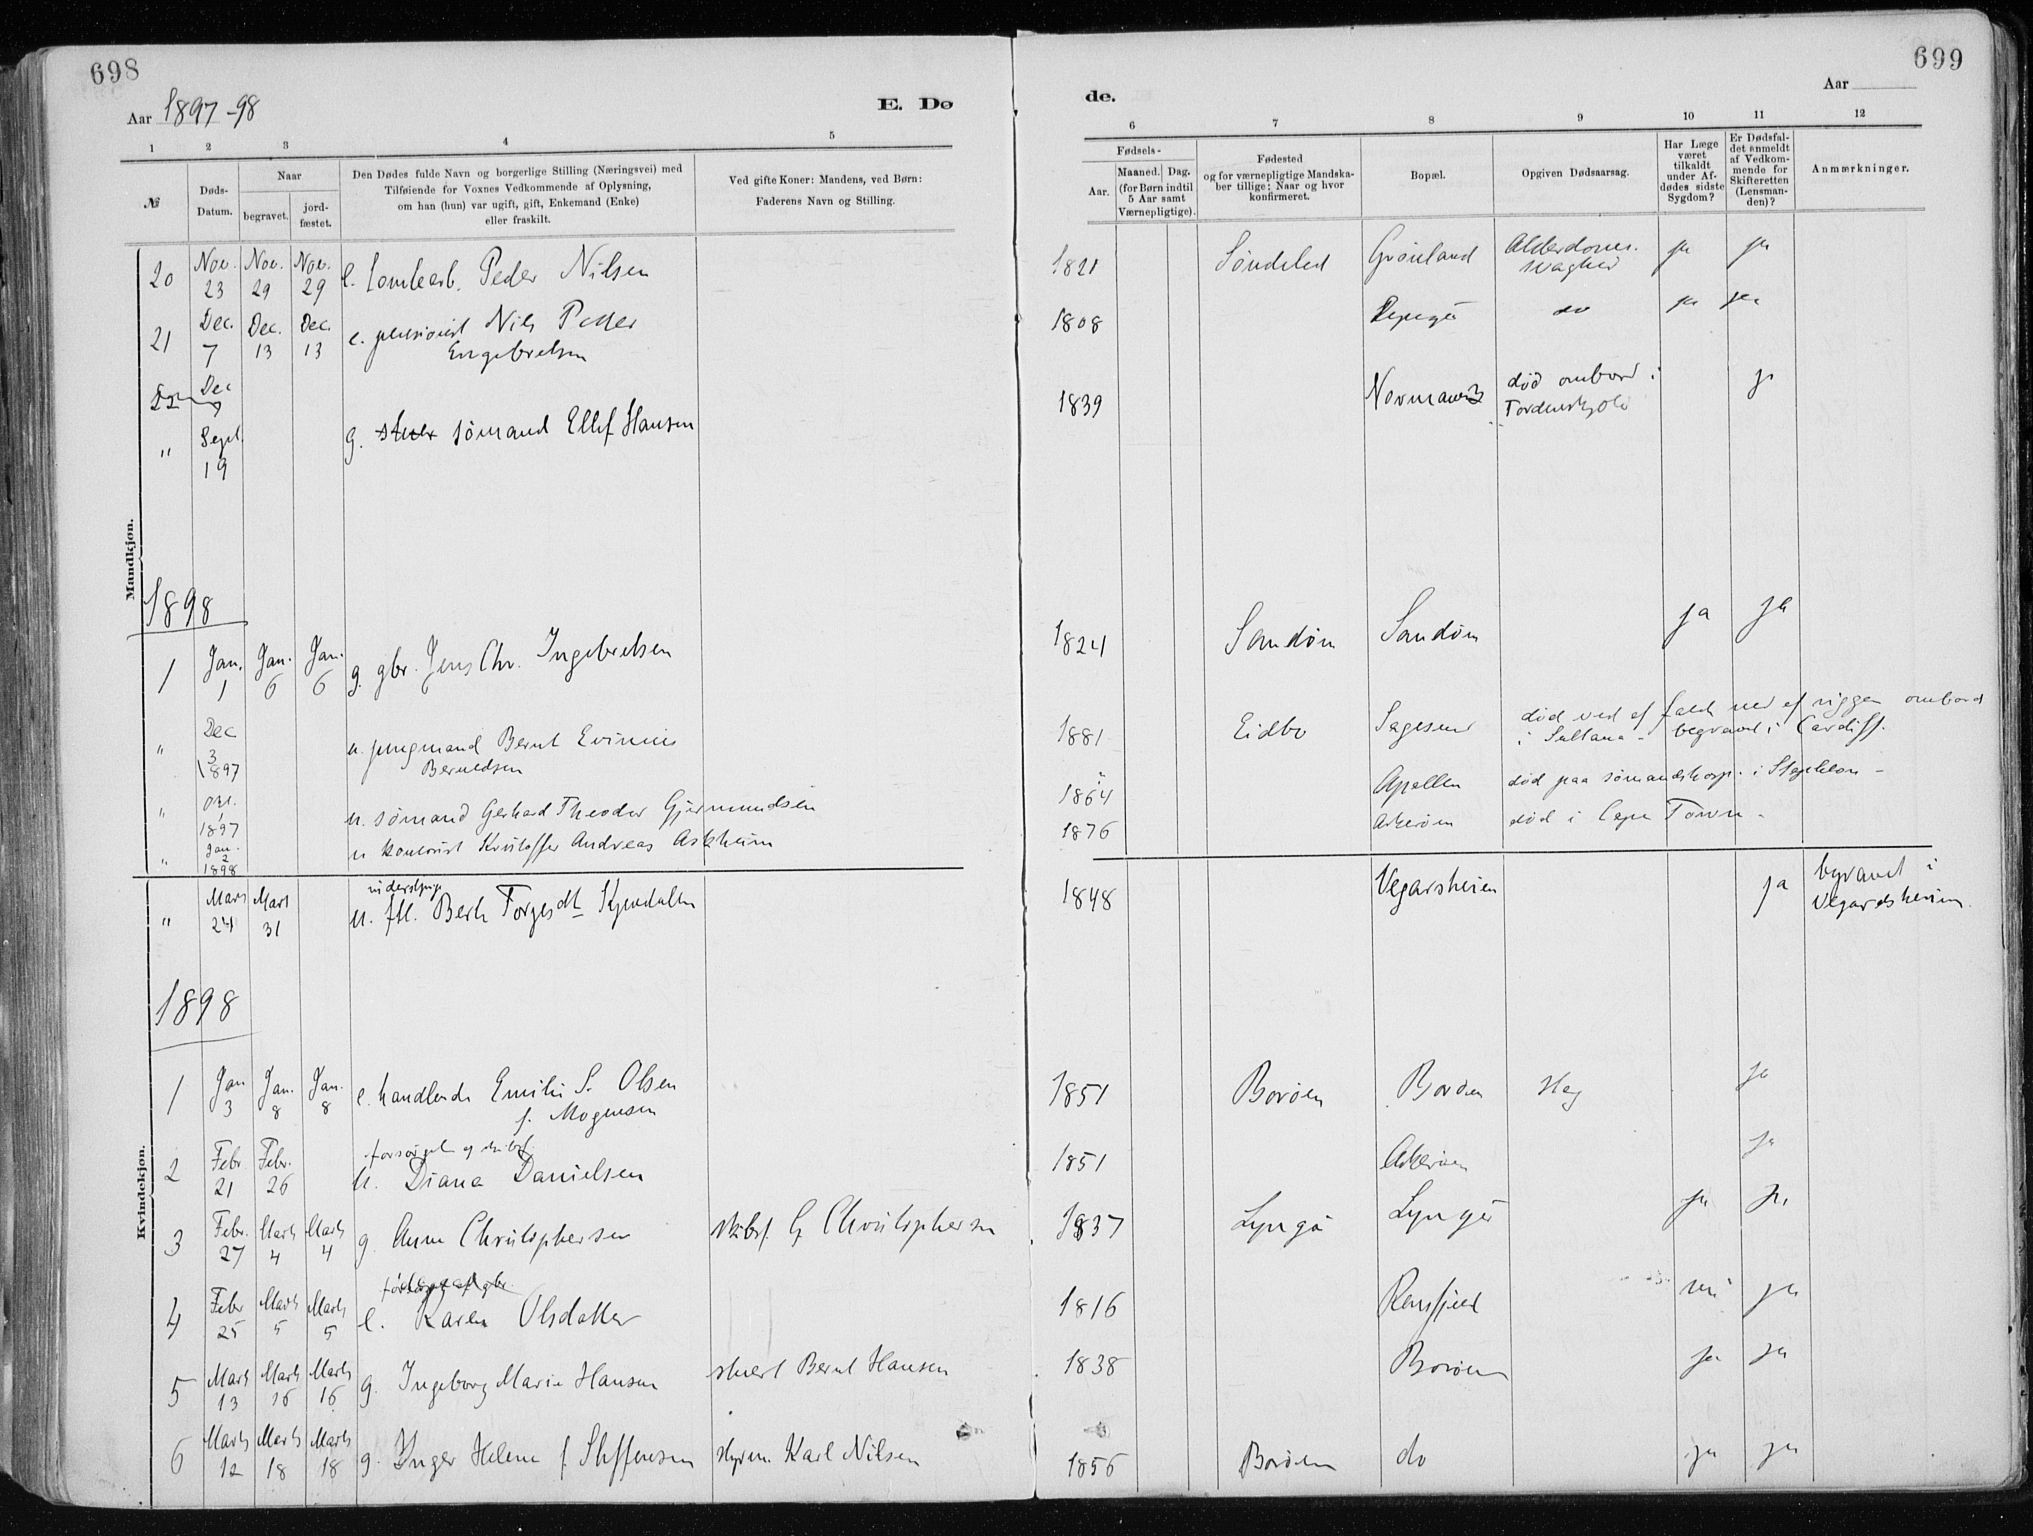 698
Aar 1897-98
E. Dø
1 2 3 4 5
№
Døds-
Datum.
Naar
begravet.
jord-
fæstet.
Den Dødes fulde Navn og borgerlige Stilling (Næringsvei) med
Tilføiende for Voxnes Vedkommende af Oplysning,
om han (hun) var ugift, gift, Enkemand (Enke)
eller fraskilt.
Ved gifte Koner: Mandens, ved Børn:
Faderens Navn og Stilling.
Mandkjøn.
20 Nov. 23 Nov. 29 Nov. 29 e. Peder Nilsen
21 Dec. 7 Dec. 13 Dec. 13 e. pensionist Nils Petter
Engebretsen
22 Dec
" Sept. 19 g. sømand Ellef Hansen
1898
1 Jan. 1 Jan. 6 Jan. 6 g. gbr. Jens Chr. Ingebretsen
" Dec 3 1897 u. jungmand Bernt Evinius
Berntdsen
" 1897 u. sømand Gerhard Theodor Gjermundsen
" Jan. 2 1898 u kontorist Kristoffer Andreas Askheim
" Marts 24 Marts 31 u. Berte Torgesdt
Kvindekjøn.
1898
1 Jan 3 Jan. 8 Jan. 8 e. handlende Emilie S. Olsen
f. Mogensen
2 Febr 21 Febr. 26 u. Diana Danielsen
3 Febr. 27 Marts 4 Marts 4 g. Anne Christophersen skibsf. G Christophersen
4 Febr 25 Marts 5 Marts 5 e. Karen Olsdatter
5 Marts 13 Marts 16 Marts 16 g. Ingeborg Marie Hansen stuert Bernt Hansen
6 Marts 12 Marts 18 Marts 18 g. Inger Helene f Steffensen styrm. Karl Nilsen
699
Aar
de.
6 7 8 9 10 11 12
Fødsels-
Aar.
Maaned. Dag.
(for Børn indtil
5 Aar samt
Værnepligtige).
Fødested
og for værnepligtige Mandska-
ber tillige: Naar og hvor
konfirmeret.
Bopæl.
Opgiven Dødsaarsag.
Har Læge
været
tilkaldt
under Af-
dødes sidste
Sygdom?
Er Dødsfal-
det anmeldt
af Vedkom-
mende for
Skifteretten
(Lensman-
den)?
Anmærkninger.
1821 Søndeled Grønland Alderdoms-
svaghed ja ja
1808 do ja ja
1839 død ombord i
Tordenskjold ja
1824 Sandøen Sandøen ja ja
1881 Eidbo Sagesund død ved et fald ned af riggen ombord
i Sultana - begravet i Cardiff.
1864 " død paa sømandshosp. i
1876 Askerøen død i Cape Town -
1848 Vegarsheien ja begravet i
Vegardsheien
1851 Borøen Borøen Slag ja
1851 Askerøen ja
1837 Lyngør Lyngør ja ja
1816 nei ja
1838 Borøen ja ja
1856 Borøen do ja ja